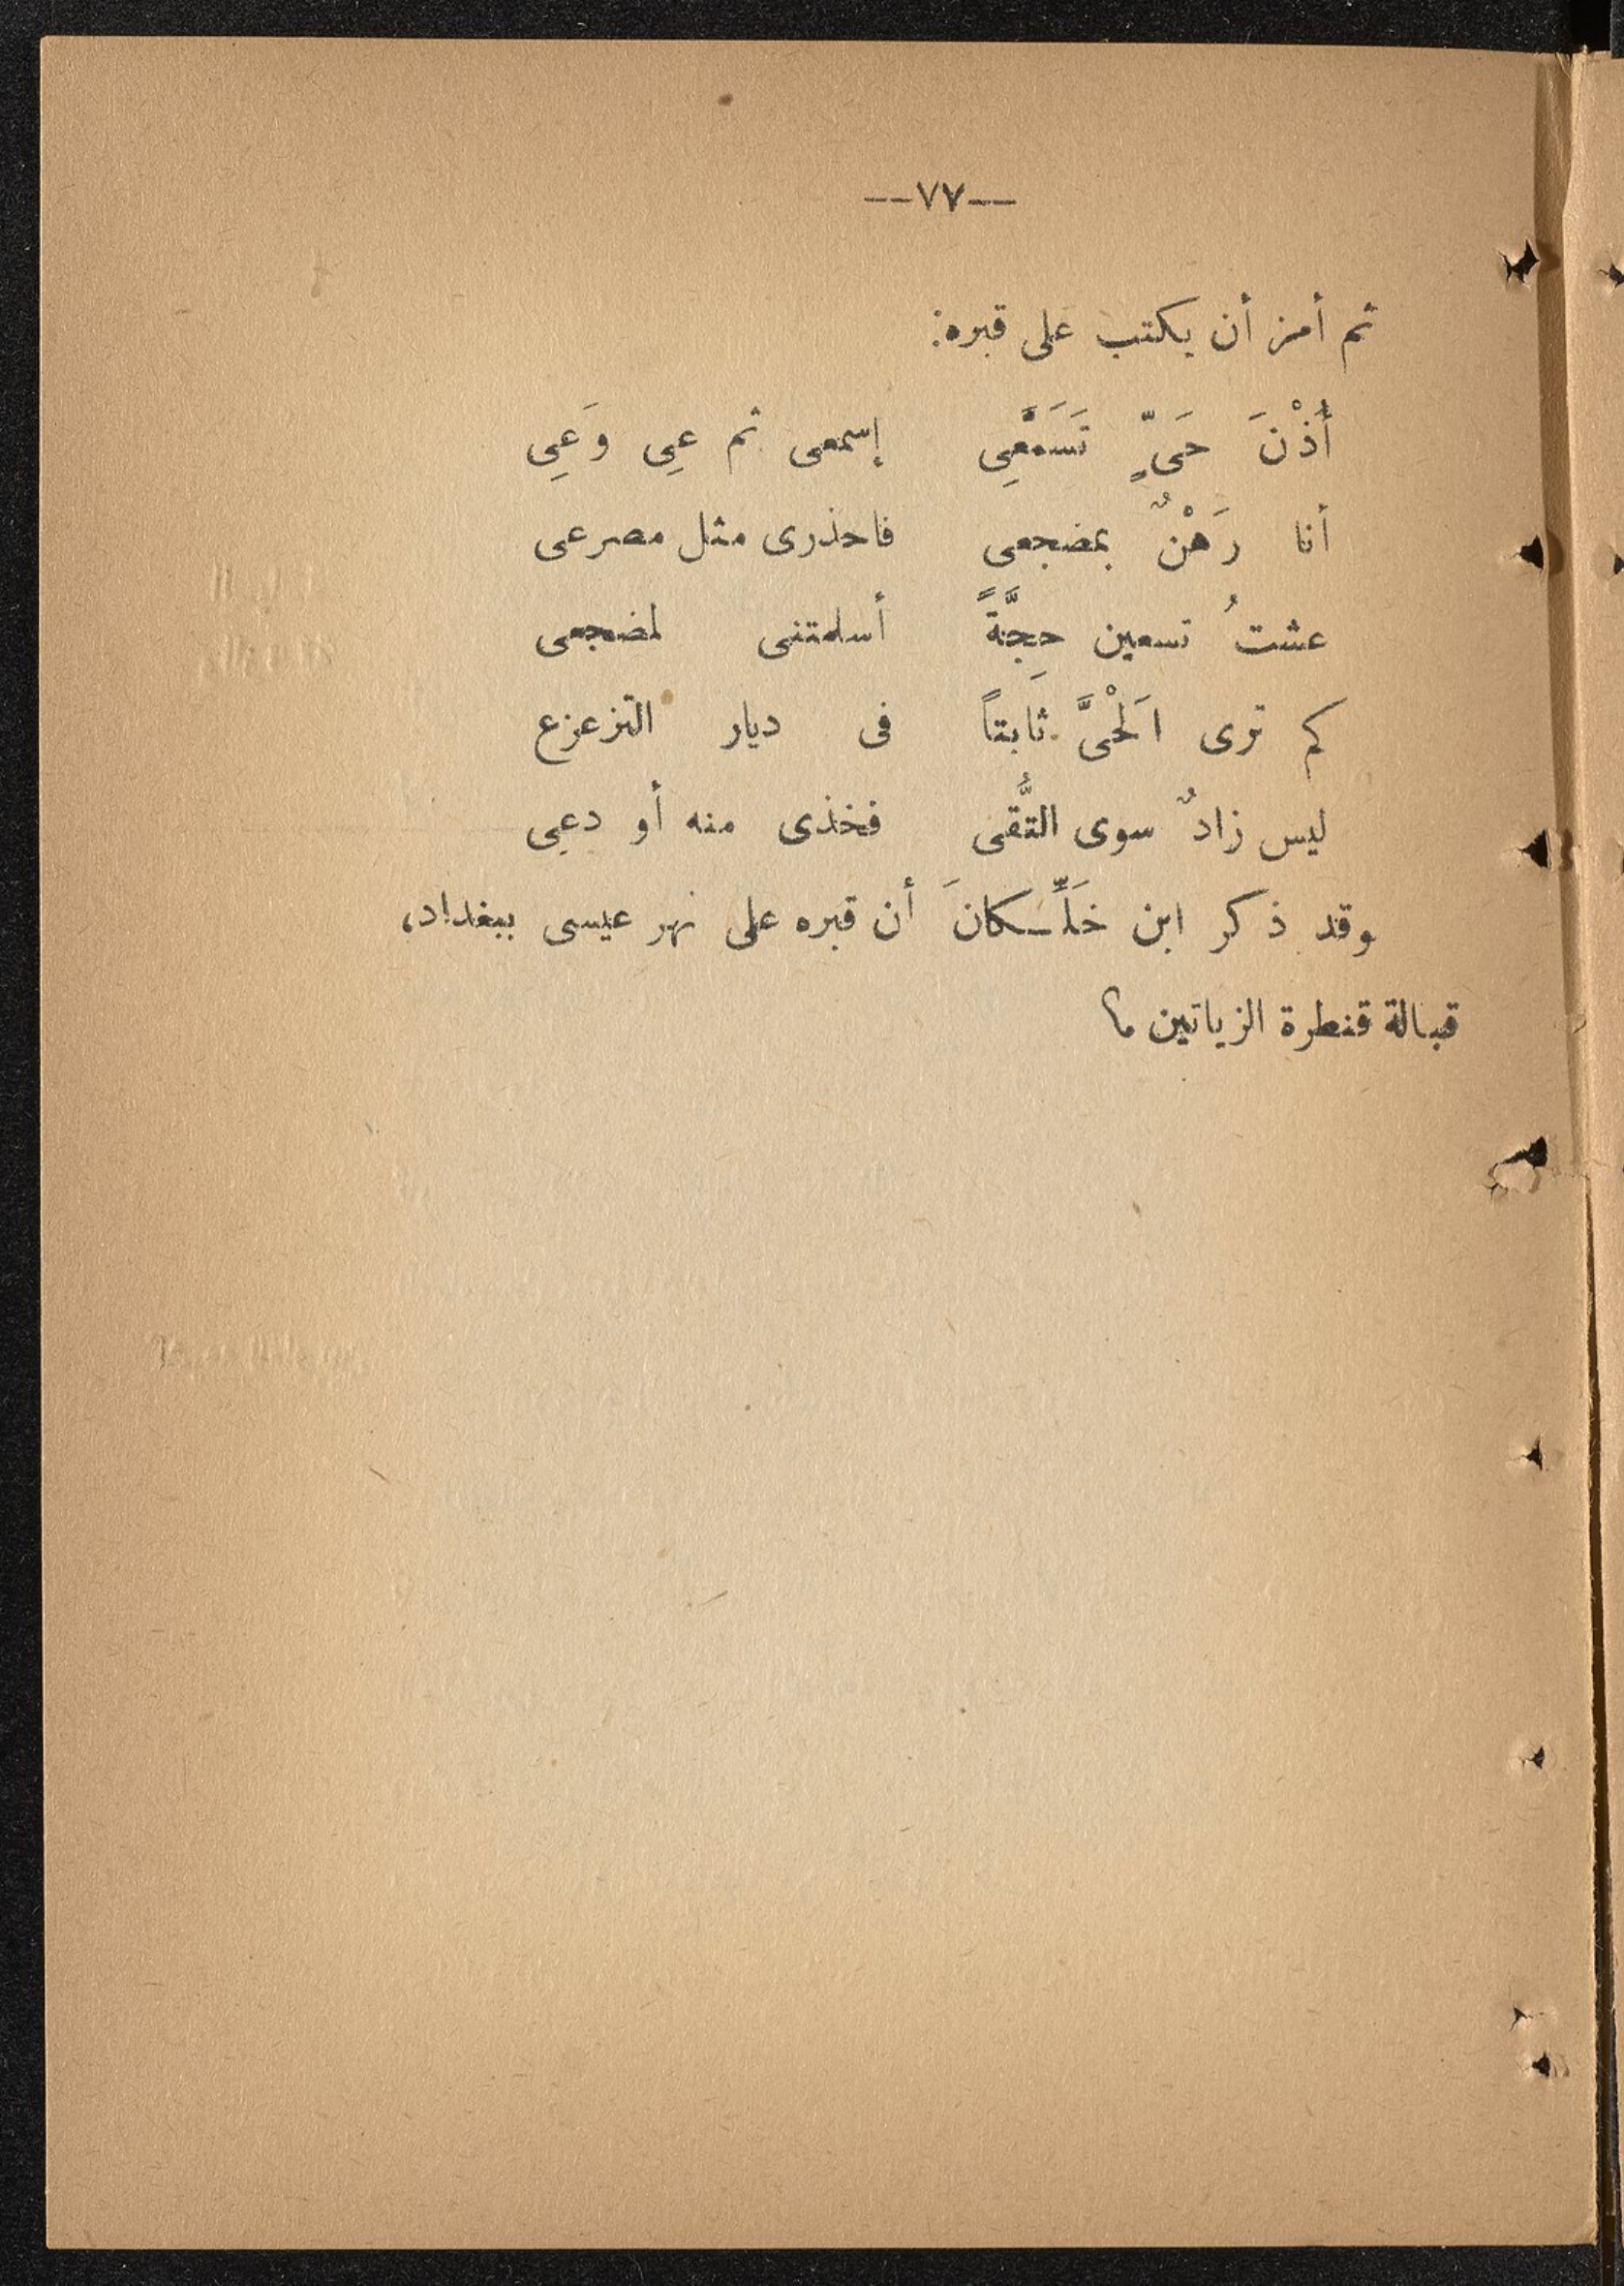 —٧٧—
ثم أمر أن يكتب على قبره:
أُذْنَ حَىٍّ تَسَمَّعِى إسمعى ثم عِى وَعِى
أنا رَهْنٌ بمضجعى فاحذرى مثل مصرعى
عشتُ تسعين حِجَّةً أسلمتنى لمضجعى
كم ترى اَلْحَىَّ ثابتاً فى ديار التزعزع
ليس زادٌ سوى التُّقى فخذى منه أو دعِى
وقد ذكر ابن خَلِّـكانَ أن قبره على نهر عيسى ببغداد،
قبالة قنطرة الزياتين